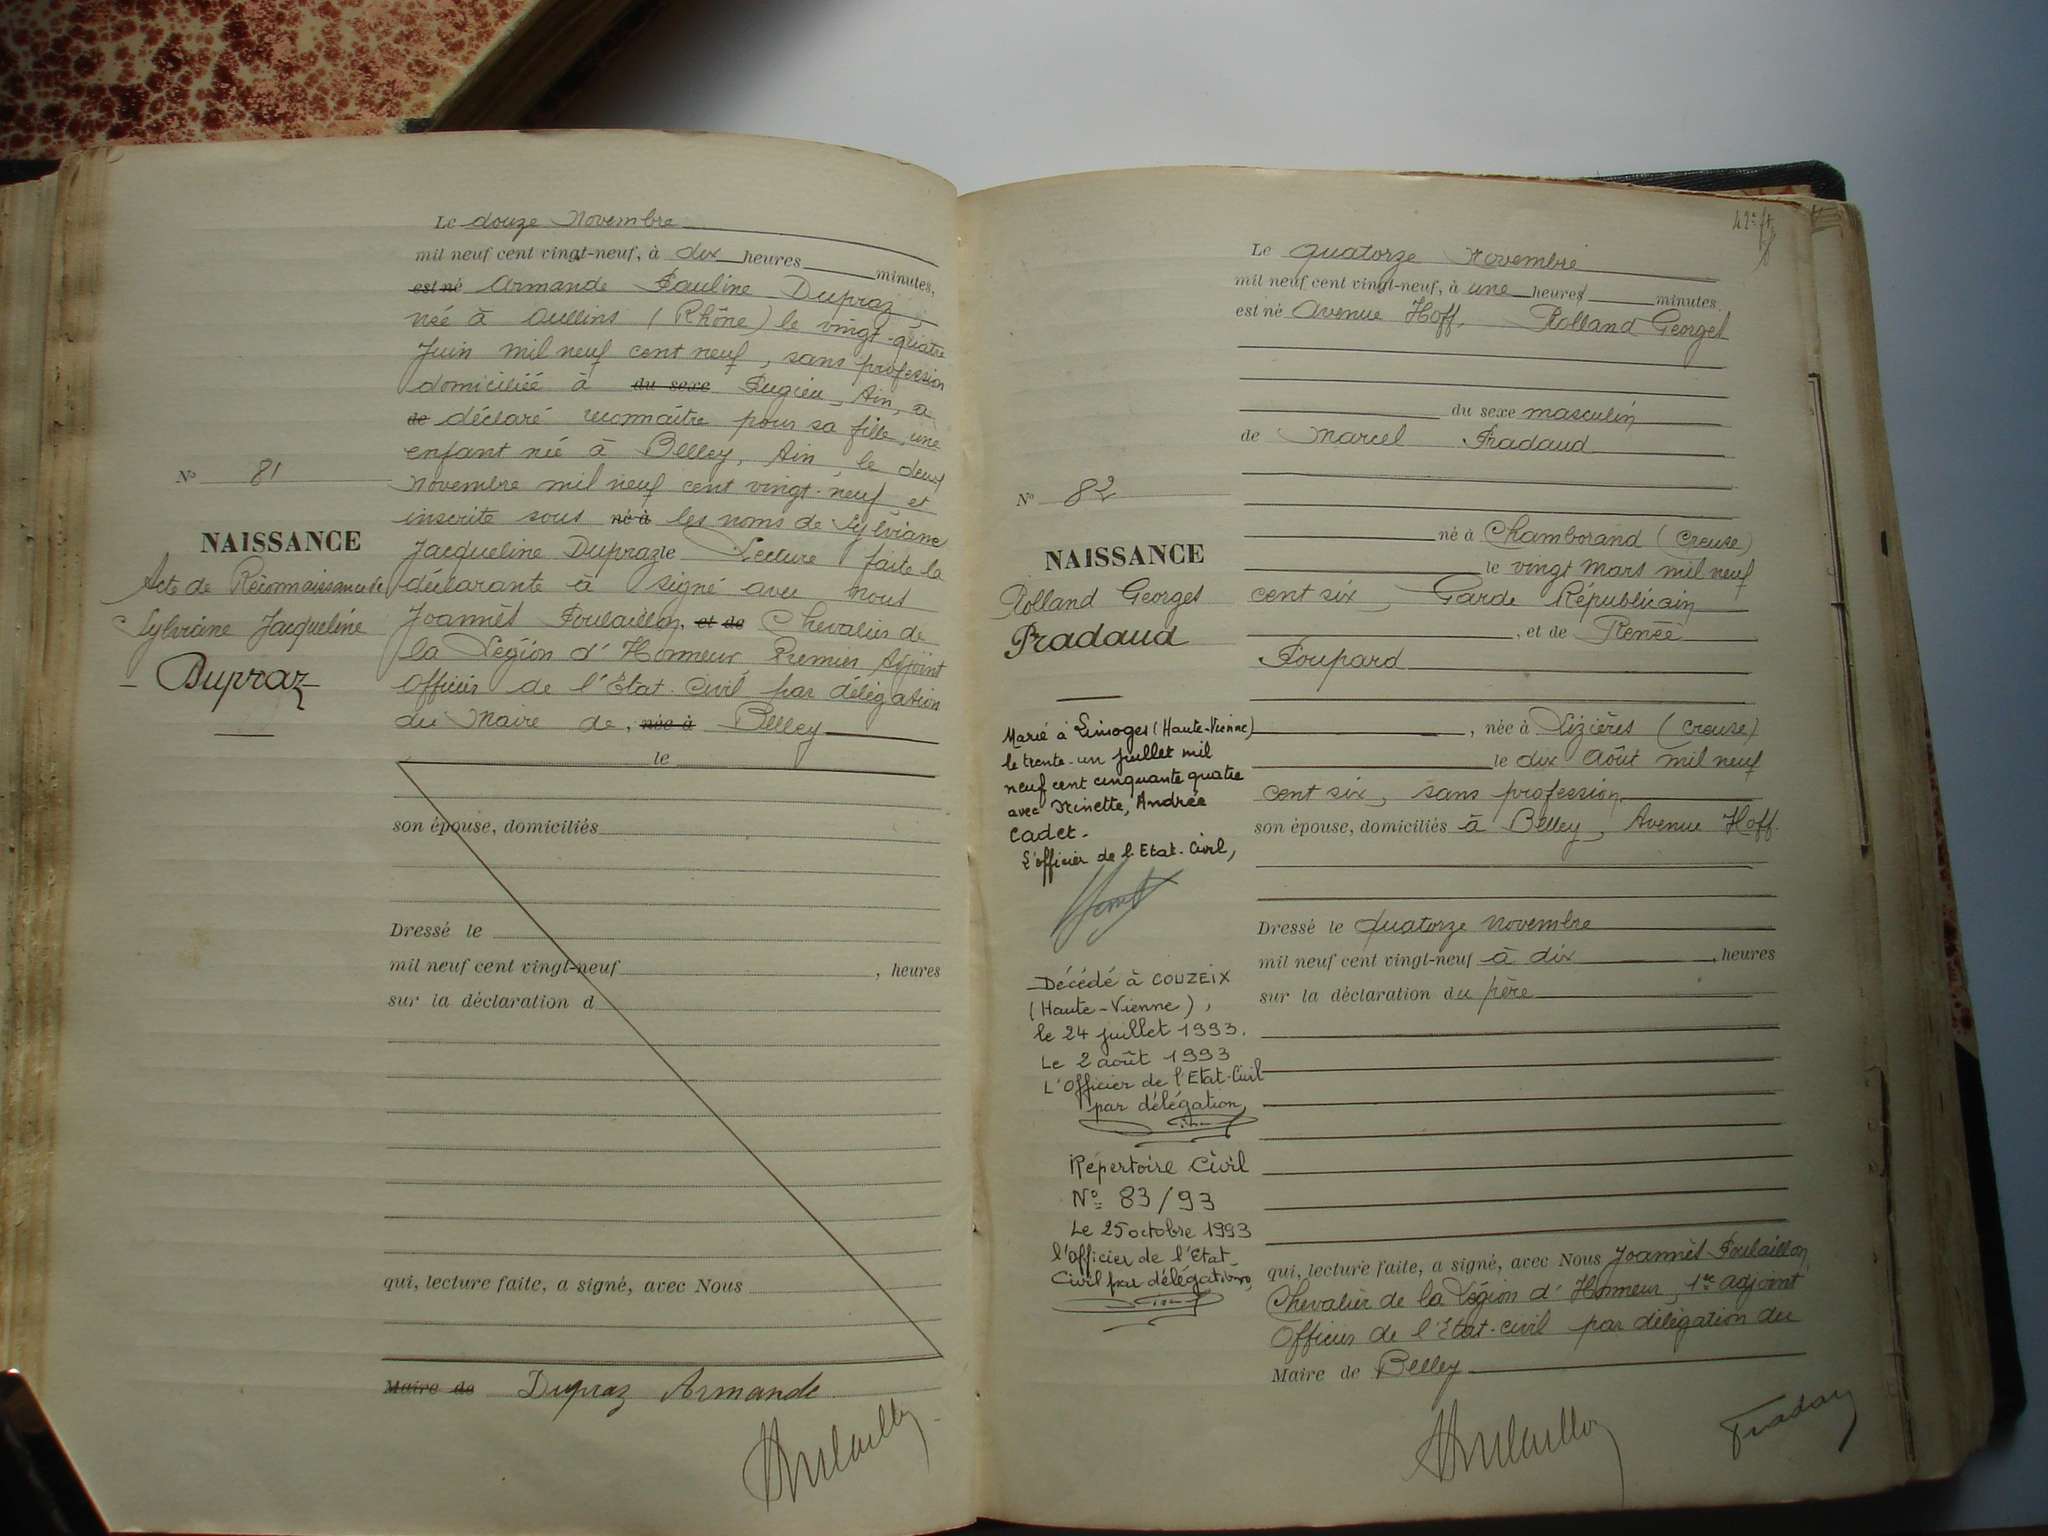 Le douze Novembre
mil neuf cent vingt-neuf, à dix heures minutes,
est né Armande Pauline Dupraz,
née à Oullins (Rhône) le vingt-quatre
Juin mil neuf cent neuf, sans profession
domiciliée à du sexe Pugieu, Ain, a
de déclaré reconnaître pour sa fille, une
enfant née à Belley, Ain, le deux
Novembre mil neuf cent vingt-neuf, et
inscrite sous né à les noms de Sylviane
Jacqueline Dupraz le Lecture faite la
déclarante à signé avec nous
Joannès Poulaillon, et de Chevalier de
la Légion d'Honneur Premier Adjoint
Officier de l'Etat-Civil par délégation
du Maire de, née à Belley
le
son épouse, domiciliés
Dressé le
mil neuf cent vingt-neuf , heures
sur la déclaration d
qui, lecture faite, a signé, avec Nous
Maire de Dupraz Armande
N° 81
NAISSANCE
Acte de Reconnaissance de
Sylviane Jacqueline
Dupraz
Le quatorze Novembre
mil neuf cent vingt-neuf, à une heures minutes
est né Avenue Hoff, Rolland Georges
du sexe masculin
de Marcel Pradaud
né à Chamborand (Creuse)
le vingt mars mil neuf
cent six, Garde Républicain
, et de Renée
Poupard
, née à Lizières (Creuse)
le dix Août mil neuf
cent six, sans profession
son épouse, domiciliés à Belley, Avenue Hoff.
Dressé le quatorze novembre
mil neuf cent vingt-neuf à dix , heures
sur la déclaration du père
qui, lecture faite, a signé, avec Nous Joannès Poulaillon,
Chevalier de la Légion d'Honneur, 1er adjoint
Officier de l'Etat-civil par délégation du
Maire de Belley
N° 82
NAISSANCE
Rolland Georges
Pradaud
Marié à Limoges (Haute-Vienne)
le trente-un juillet mil
neuf cent cinquante quatre
avec Ninette, Andrée
Cadet.
L'officier de l'Etat-Civil,
Décédé à COUZEIX
(Haute-Vienne),
le 24 juillet 1993.
Le 2 août 1993
L'Officier de l'Etat-Civil
par délégation,
Répertoire Civil
N° 83/93
Le 25 octobre 1993
l'Officier de l'Etat-
Civil par délégation,